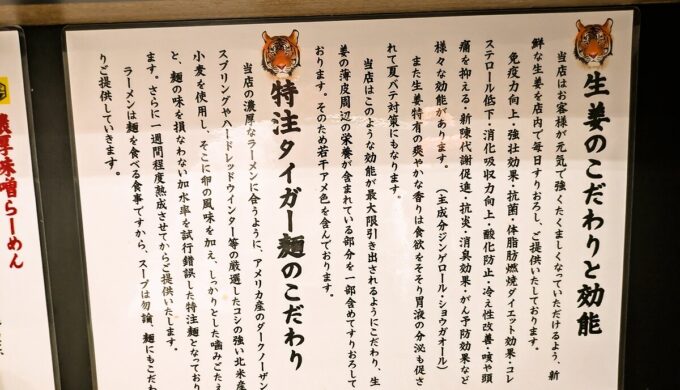 生姜のこだわりと効能
当店はお客様が元気で強くたくましくなっていただけるよう、新
鮮な生姜を店内で毎日すりおろし、ご提供いたしております。
免疫力向上・強壮効果・抗菌・体脂肪燃焼ダイエット効果・コレ
ステロール低下・消化吸収力向上・酸化防止・冷え性改善・咳や頭
痛を抑える・新陳代謝促進・抗炎・消臭効果・がん予防効果など
様々な効能があります。（主成分ジンゲロール・ショウガオール）
また生姜特有の爽やかな香りは食欲をそそり胃液の分泌も促さ
れて夏バテ対策にもなります。
当店はこのような効能が最大限引き出されるようにこだわり、生
姜の薄皮周辺の栄養が含まれている部分を一部含めてすりおろして
おります。そのため若干アメ色を含んでおります。
特注タイガー麺のこだわり
当店の濃厚なラーメンに合うように、アメリカ産のダークノーザン
スプリングやハードレッドウインター等の厳選したコシの強い北米産
小麦を使用し、そこに卵の風味を加え、しっかりとした噛みごたえ
と、麺の味を損なわない加水率を試行錯誤した特注麺となっており
ます。さらに一週間程度熟成させてからご提供いたします。
ラーメンは麺を食べる食事ですから、スープは勿論、麺にもこだわ
りご提供していきます。
濃厚味噌らーめん